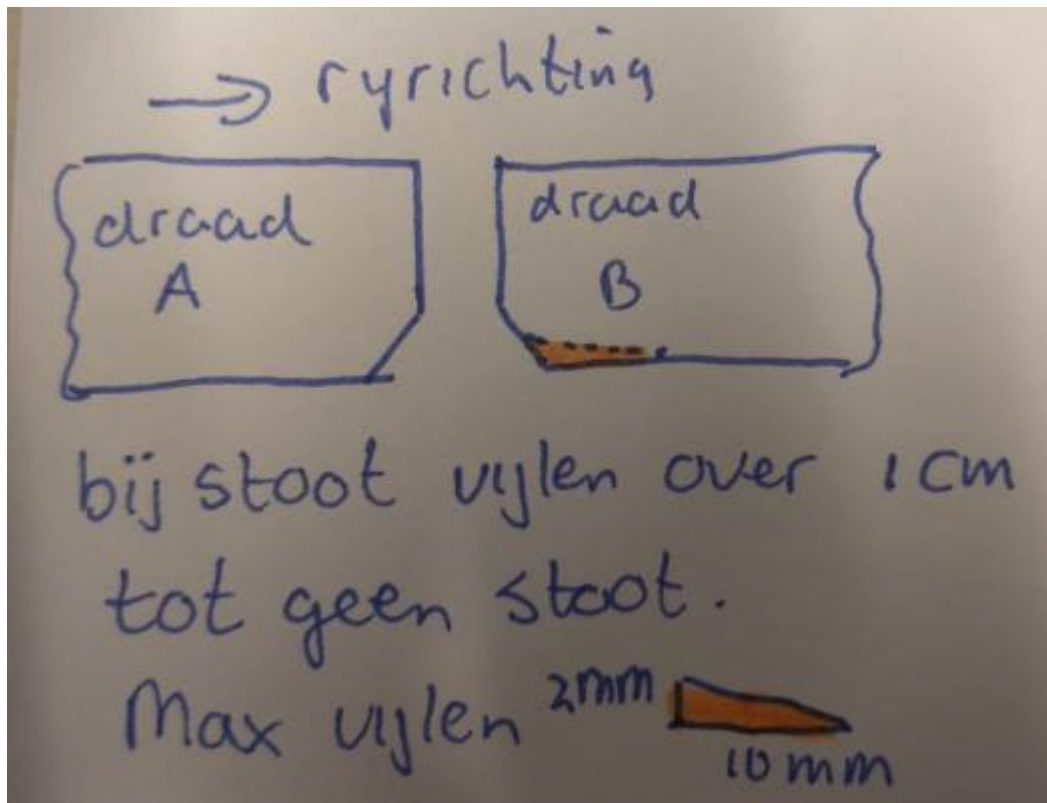 → ryrichting
draad
A
draad
B
bij stoot vijlen over 1 cm
tot geen stoot.
Max vijlen 2mm
10 mm